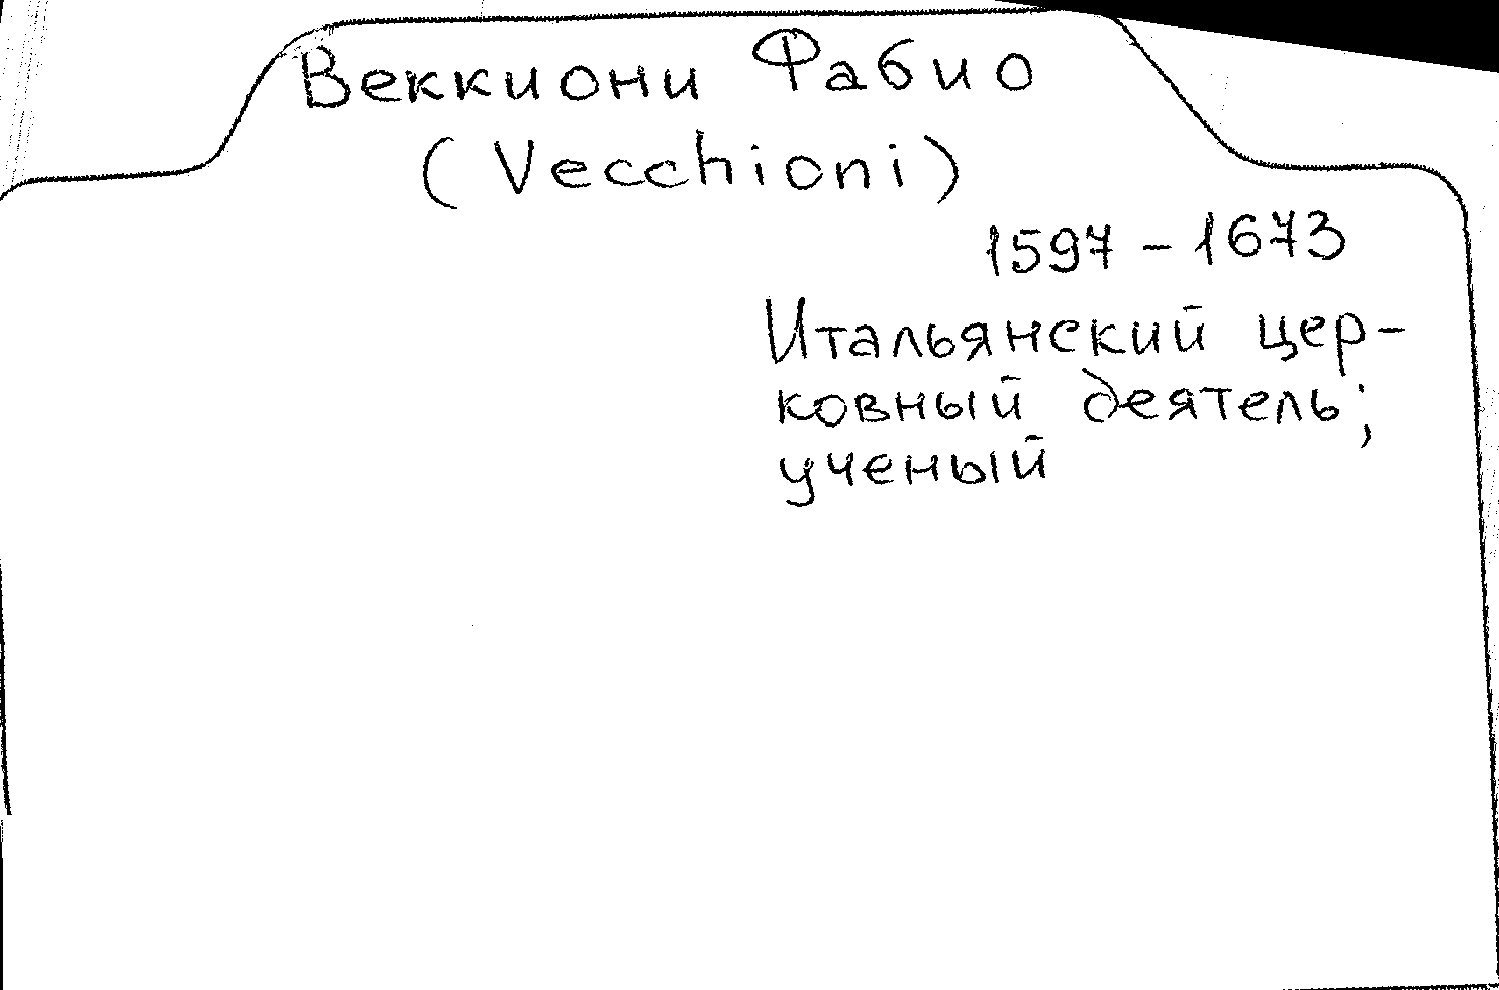 Веккиони Фабио
(Vecchioni)
1597 - 1673
Итальянский цер-
ковный деятель;
ученый